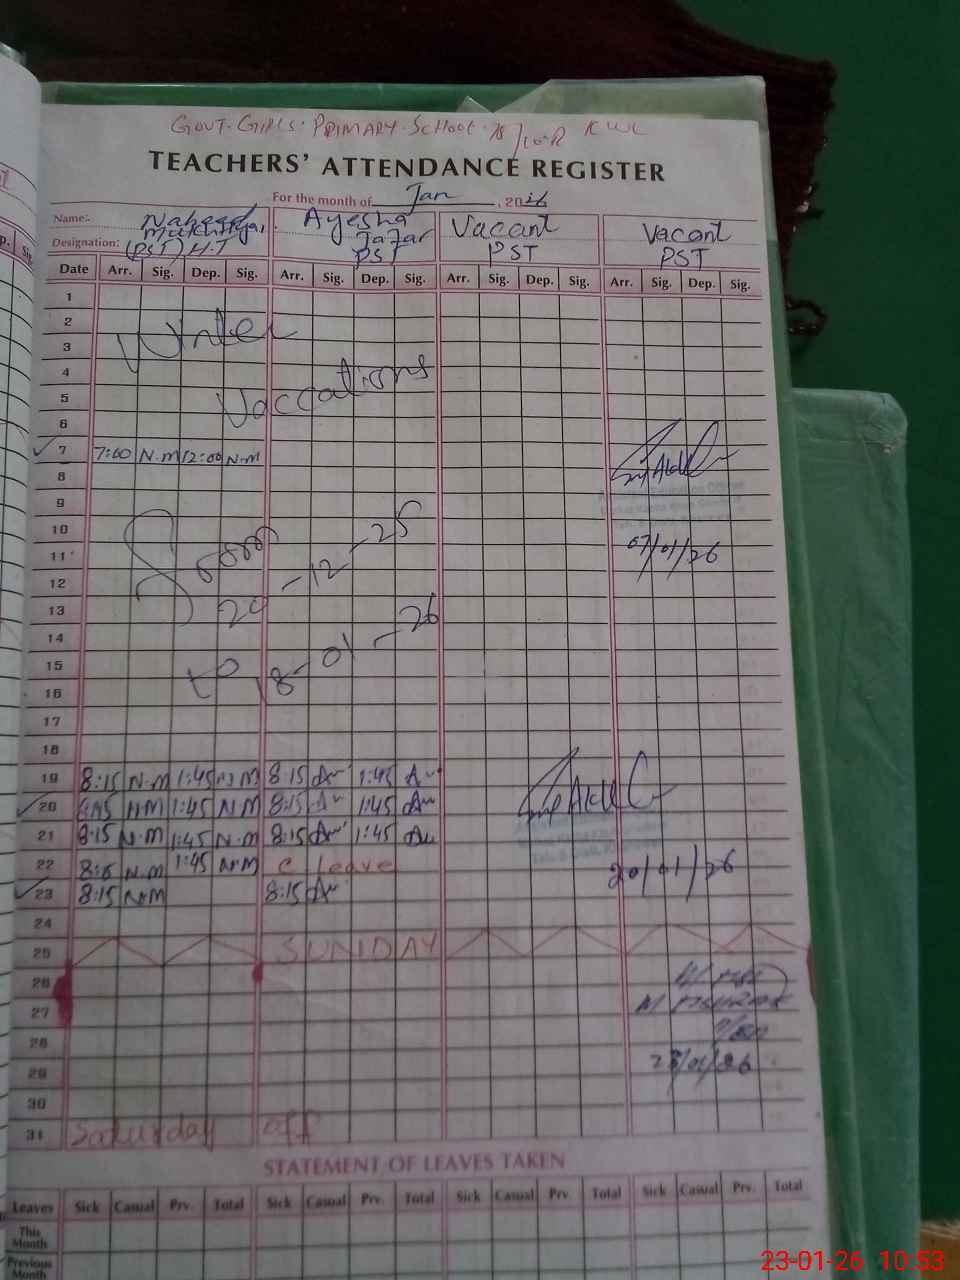 GOVT. GIRLS. PRIMARY. SCHOOL. 75/10-R KWL
TEACHERS' ATTENDANCE REGISTER
For the month of Jan, 2026
Name: Naheed Mukhtiyar Ayesha Jafar Vacant Vacant
Designation: (PST) H.T PST PST PST
Date Arr. Sig. Dep. Sig. Arr. Sig. Dep. Sig. Arr. Sig. Dep. Sig. Arr. Sig. Dep. Sig.
1
2 Winter
3
4
5 Vaccations
6
7 7:00 N.M 12:00 N.M
8
9
10
11 07/01/26
12 From 20-12-25
13
14
15 to 18-01-26
16
17
18
19 8:15 N.M 1:45 N.M 8:15 1:45
20 8:15 N.M 1:45 N.M 8:15 1:45
21 8:15 N.M 1:45 N.M 8:15 1:45
22 8:15 N.M 1:45 N.M C Leave 20/01/26
23 8:15 N.M 8:15
24
25 SUNDAY
26
27
28
29 23/01/26
30
31 Saturday off
STATEMENT OF LEAVES TAKEN
Leaves Sick Casual Prv. Total Sick Casual Prv. Total Sick Casual Prv. Total Sick Casual Prv. Total
This Month
Previous Month
23-01-26 10:53